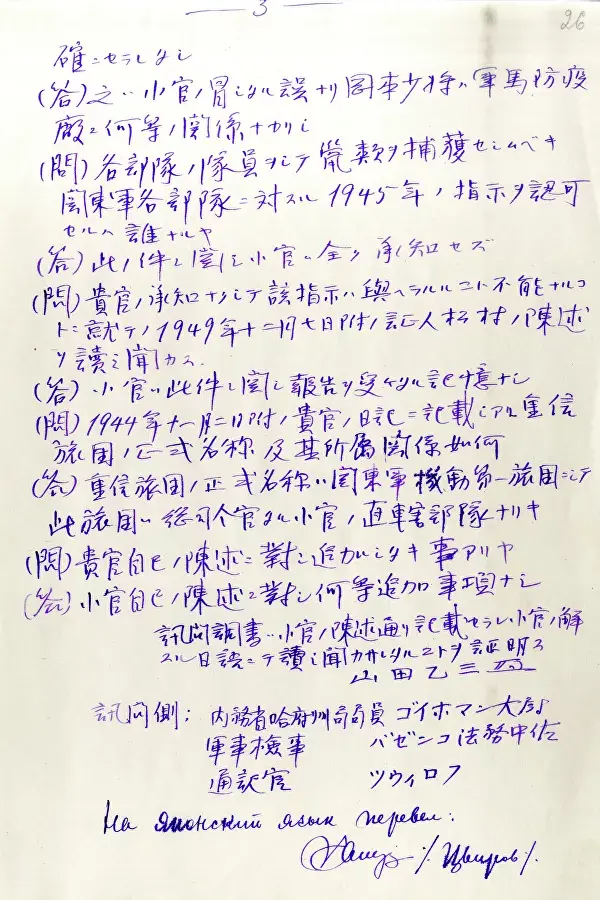 — 3 —
26
確ニセラレタシ
(答) 之ハ小官ノ冒シタル誤ナリ岡本少将ハ軍馬防疫
廠ニ何等ノ関係ナカリシ
(問) 各部隊ノ隊員ヲシテ鼠類ヲ捕獲セシムベキ
関東軍各部隊ニ対スル1945年ノ指示ヲ認可
セルハ誰ナルヤ
(答) 此ノ件ニ関シ小官ハ全ク承知セズ
(問) 貴官ノ承知ナクシテ該指示ハ與ヘラルルコト不能ナルコ
トニ就テノ1949年十二月七日附ノ証人松村ノ陳述
ヲ讀ミ聞カス.
(答) 小官ハ此件ニ関シ報告ヲ受ケタル記憶ナシ
(問) 1944年十一月二日附ノ貴官ノ日記ニ記載シアル重信
旅団ノ正式名称及其所属関係如何
(答) 重信旅団ノ正式名称ハ関東軍機動第一旅団ニシテ
此旅団ハ総司令官タル小官ノ直轄部隊ナリキ
(問) 貴官自己ノ陳述ニ對シ追加シタキ事アリヤ
(答) 小官自己ノ陳述ニ對シ何等追加事項ナシ
訊問調書ハ小官ノ陳述通リ記載セラレ小官ノ解
スル日語ニテ讀ミ聞カサレタルコトヲ証明ス
山田乙三
訊問側: 内務省哈府州局局員 ゴイホマン大尉
軍事檢事 バゼンコ法務中佐
通訳官 ツウィロフ
На японский язык перевел:
/Цвиров/.